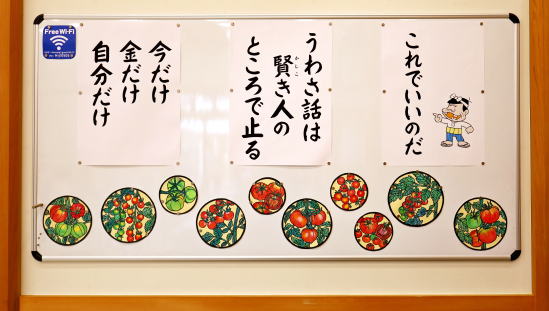 これでいいのだ
うわさ話は
賢き人の
かしこ
ところで止る
今だけ
金だけ
自分だけ
Free Wi-Fi